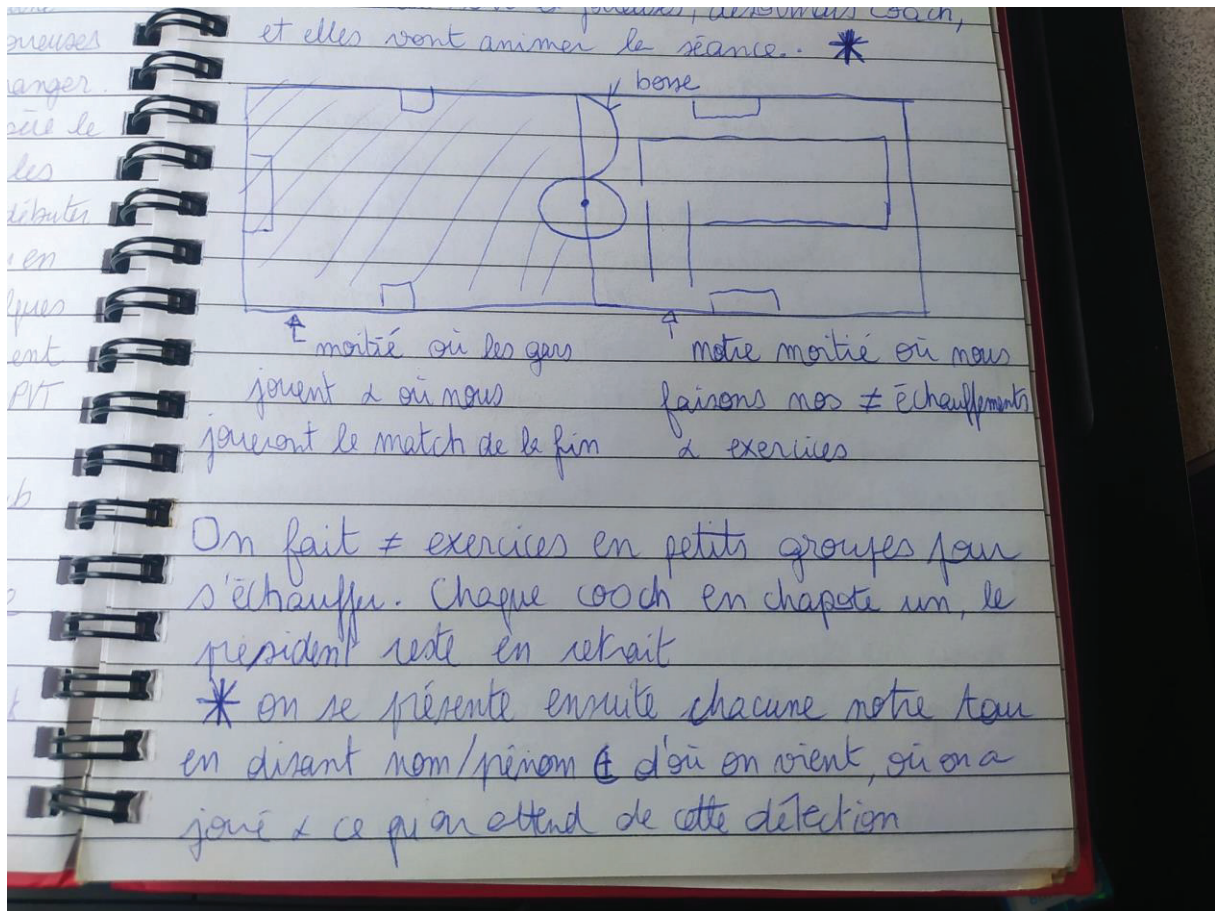 joueuses, désormais coach,
et elles vont animer la séance. *
bosse
moitié où les gars
jouent & où nous
joueront le match de la fin
notre moitié où nous
faisons nos ≠ échauffements
& exercices
On fait ≠ exercices en petits groupes pour
s'échauffer. Chaque coach en chapote un, le
président reste en retrait
* on se présente ensuite chacune notre tour
en disant nom/prénom & d'où on vient, où on a
joué & ce qu'on attend de cette détection
ranger.
le
les
débuter
en
ent
PVT